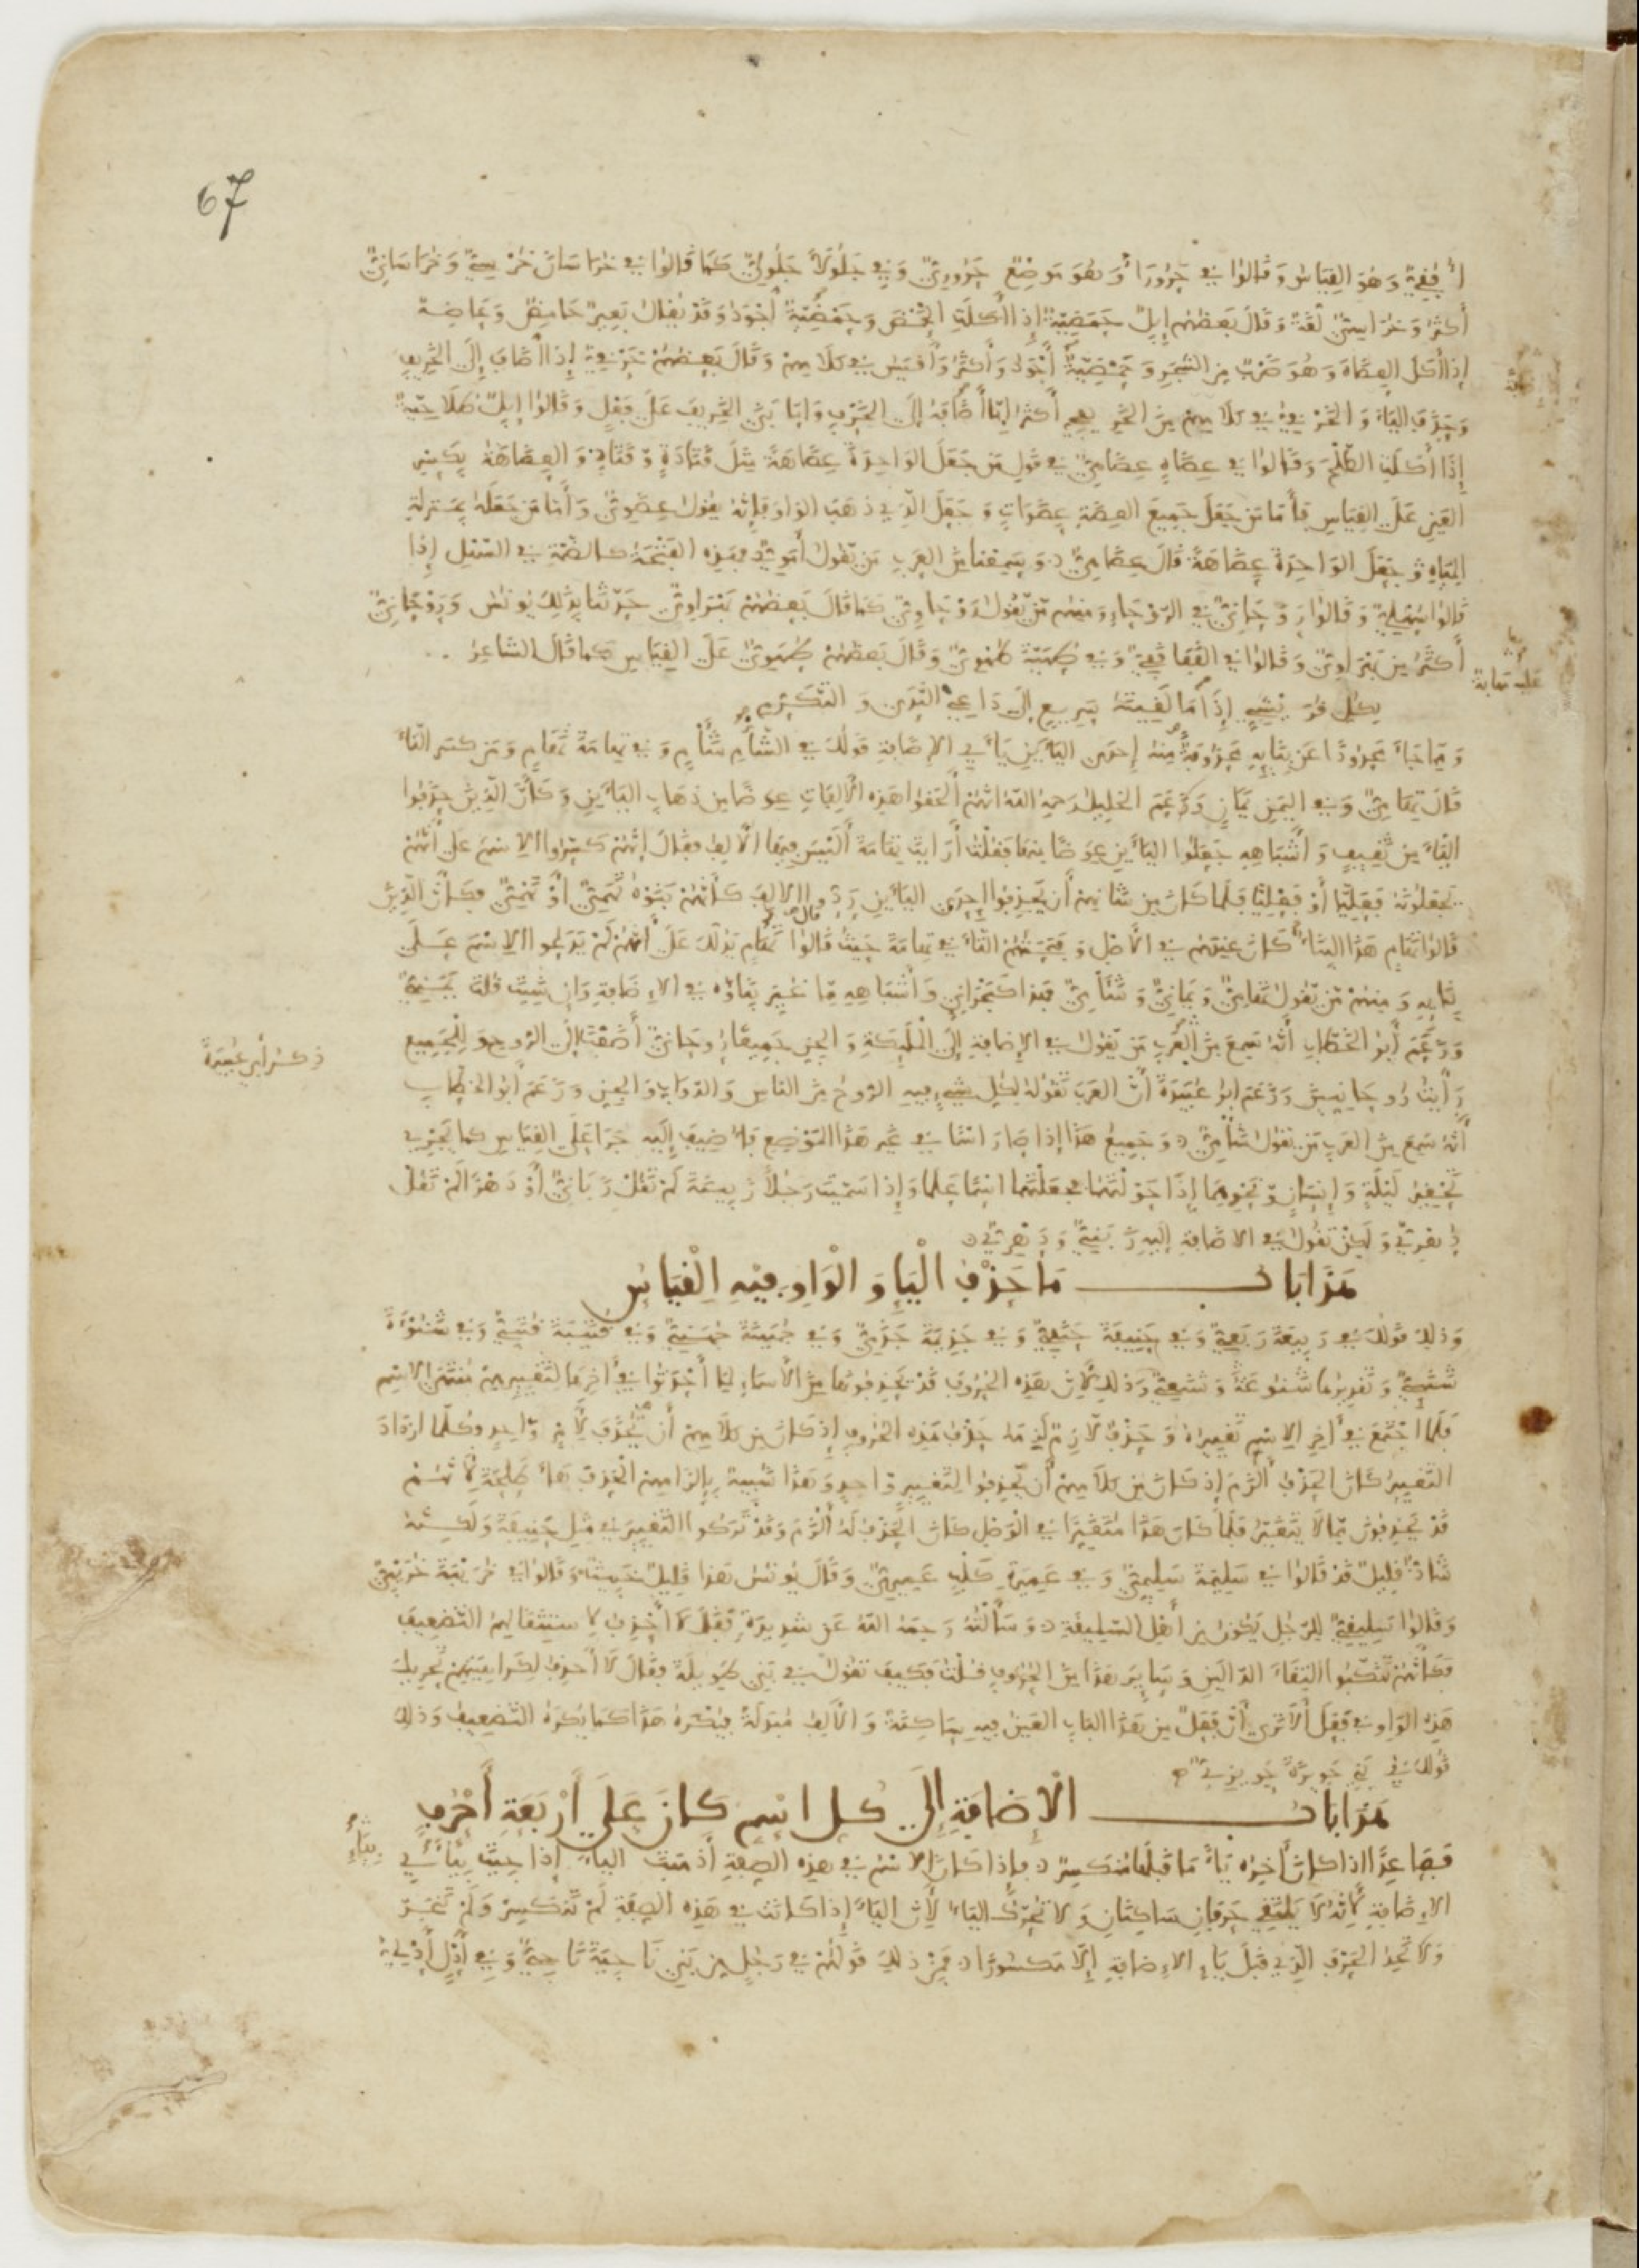 67
أُفُقِيّ وَهُوَ القِيَاسُ وَقَالُوا فِي حَرُورَاءَ وَهُوَ مَوْضِعٌ حَرُورِيٌّ وَفِي جَلُولَاءَ جَلُولِيٌّ كَمَا قَالُوا فِي خُرَاسَانَ خُرْسِيٌّ وَخُرَاسَانِيٌّ
أَكْثَرُ وَخُرَاسِيٌّ لُغَةٌ وَقَالَ بَعْضُهُم إِبِلٌ حَمَضِيَّةٌ إِذَا أَكَلَتِ الحَمْضَ وَحَمْضِيَّةٌ أَجْوَدُ وَقَدْ يُقَالُ بَعِيرٌ حَامِضٌ وَعَاضِهٌ
إِذَا أَكَلَ العِضَاهَ وَهُوَ ضَرْبٌ مِنَ الشَّجَرِ وَحَمْضِيَّةٌ أَجْوَدُ وَأَكْثَرُ وَأَقْيَسُ فِي كَلَامِهِمْ وَقَالَ بَعْضُهُمْ خَرْفِيٌّ إِذَا أَضَافَ إِلَى الخَرِيفِ
وَحَذَفَ اليَاءَ وَالخَرْفِيُّ فِي كَلَامِهِمْ مِنَ الخَرِيفِيِّ أَكْثَرُ إِمَّا أَضَافَهُ إِلَى الخَرْفِ وَإِمَّا بَنَى الخَرِيفَ عَلَى فَعْلٍ وَقَالُوا إِبِلٌ طُلَاحِيَّةٌ
إِذَا أَكَلَتِ الطَّلْحَ وَقَالُوا فِي عِضَاهٍ عِضَاهِيٌّ فِي قَوْلِ مَنْ جَعَلَ الوَاحِدَةَ عِضَاهَةً مِثْلَ قَتَادَةٍ وَقَتَادٍ وَالعِضَاهَةُ بِكَسْرِ
العَيْنِ عَلَى القِيَاسِ فَأَمَّا مَنْ جَعَلَ جَمِيعَ العِضَةِ عِضَوَاتٍ وَجَعَلَ الَّذِي ذَهَبَ الوَاوَ فَإِنَّهُ يَقُولُ عِضَوِيٌّ وَأَمَّا مَنْ جَعَلَهُ بِمَنْزِلَةِ
المِيَاهِ وَجَعَلَ الوَاحِدَةَ عِضَاهَةً قَالَ عِضَاهِيٌّ وَسَمِعْنَا مِنَ العَرَبِ مَنْ يَقُولُ أَمَوِيٌّ فَهَذِهِ الفَتْحَةُ كَالضَّمَّةِ فِي السَّهْلِ إِذَا
قَالُوا سُهْلِيٌّ وَقَالُوا رَوْحَانِيٌّ فِي الرَّوْحَاءِ وَمِنْهُم مَنْ يَقُولُ رَوْحَاوِيٌّ كَمَا قَالَ بَعْضُهُمْ بَهْرَاوِيٌّ حَدَّثَنَا بِذَلِكَ يُونُسُ وَرَوْحَانِيٌّ
أَكْثَرُ مِنْ بَهْرَاوِيٌّ وَقَالُوا فِي القُفَا قُفِيٌّ وَفِي طُهَيَّةَ طُهْوِيٌّ وَقَالَ بَعْضُهُمْ طُهَوِيٌّ عَلَى القِيَاسِ كَمَا قَالَ الشَّاعِرُ
بِكُلِّ قُرَيْشِيٍّ إِذَا مَا لَقِيتَهُ سَرِيعٍ إِلَى دَاعِي النَّدَى وَالتَّكَرُّمِ
وَمِمَّا جَاءَ مَحْدُودًا عَنْ بِنَائِهِ مَحْذُوفَةً مِنْهُ إِحْدَى اليَاءَيْنِ يَاءَيِ الإِضَافَةِ قَوْلُكَ فِي الشَّأْمِ شَآمٍ وَفِي تِهَامَةَ تَهَامٍ وَمَنْ كَسَرَ التَّاءَ
قَالَ تِهَامِيٌّ وَفِي اليَمَنِ يَمَانٍ وَزَعَمَ الخَلِيلُ رَحِمَهُ اللهُ أَنَّهُمْ أَلْحَقُوا هَذِهِ الأَلِفَاتِ عِوَضًا مِنْ ذَهَابِ اليَاءَيْنِ وَكَأَنَّ الَّذِينَ حَذَفُوا
اليَاءَ مِنْ ثَقِيفٍ وَأَشْبَاهِهِ جَعَلُوا اليَاءَيْنِ عِوَضًا مِنْهَا فَقُلْتُ أَرَأَيْتَ تِهَامَةَ أَلَيْسَ فِيهَا الأَلِفُ فَقَالَ إِنَّهُمْ كَسَّرُوا الاسْمَ عَلَى أَنَّهُمْ
يَجْعَلُونَهُ فَعَلِيًّا أَوْ فَعْلِيًّا فَلَمَّا كَانَ مِنْ شَأْنِهِمْ أَنْ يَحْذِفُوا إِحْدَى اليَاءَيْنِ رَدُّوا الأَلِفَ كَأَنَّهُمْ بَنَوْهُ تَهَمِيٌّ أَوْ تَهْمِيٌّ فَكَأَنَّ الَّذِينَ
قَالُوا تَهَامٍ هَذَا البِنَاءُ كَانَ عِنْدَهُمْ فِي الأَصْلِ وَفَتْحَتُهُمُ التَّاءَ فِي تِهَامَةَ حَيْثُ قَالُوا تَهَامٍ يَدُلُّكَ عَلَى أَنَّهُمْ لَمْ يَدَعُوا الاسْمَ عَلَى
بِنَائِهِ وَمِنْهُمْ مَنْ يَقُولُ تَهَامِيٌّ وَيَمَانِيٌّ وَشَآمِيٌّ فَهَذَا كَبَحْرَانِيٍّ وَأَشْبَاهِهِ مِمَّا غُيِّرَ بِنَاؤُهُ فِي الإِضَافَةِ وَإِنْ شِئْتَ قُلْتَ يَمَنِيٌّ
وَزَعَمَ أَبُو الخَطَّابِ أَنَّهُ سَمِعَ مِنَ العَرَبِ مَنْ يَقُولُ فِي الإِضَافَةِ إِلَى المَلَائِكَةِ وَالجِنِّ جَمِيعًا رُوحَانِيٌّ أَضَفْتَ إِلَى الرُّوحِ وَلِلْجَمِيعِ
رَأَيْتُ رُوحَانِيِّينَ وَزَعَمَ أَبُو عُبَيْدَةَ أَنَّ العَرَبَ تَقُولُهُ لِكُلِّ شَيْءٍ فِيهِ الرُّوحُ مِنَ النَّاسِ وَالدَّوَابِّ وَالجِنِّ وَزَعَمَ أَبُو الخَطَّابِ
أَنَّهُ سَمِعَ مِنَ العَرَبِ مَنْ يَقُولُ شَأْمِيٌّ وَجَمِيعُ هَذَا إِذَا صَارَ اسْمًا فِي غَيْرِ هَذَا المَوْضِعِ فَأُضِيفَ إِلَيْهِ جَرَى عَلَى القِيَاسِ كَمَا يَجْرِي
تَحْقِيرُ لَيْلَةٍ وَإِنْسَانٍ وَنَحْوِهِمَا إِذَا حَوَّلْتَهُمَا فَجَعَلْتَهُمَا اسْمًا عَلَمًا وَإِذَا سَمَّيْتَ رَجُلًا زَبِينَةَ لَمْ تَقُلْ زَبَانِيٌّ أَوْ دَهْرًا لَمْ تَقُلْ
دُهْرِيٌّ وَلَكِنْ تَقُولُ فِي الاضَافَةِ إِلَيْهِ زَبَنِيٌّ وَدَهْرِيٌّ
هَذَا بَابُ مَا حَذْفُ الْيَاءِ وَالْوَاوِ فِيهِ الْقِيَاسُ
وَذَلِكَ قَوْلُكَ فِي رَبِيعَةَ رَبَعِيٌّ وَفِي حَنِيفَةَ حَنَفِيٌّ وَفِي جَذِيمَةَ جَذَمِيٌّ وَفِي جُهَيْنَةَ جُهَنِيٌّ وَفِي قُتَيْبَةَ قُتَبِيٌّ وَفِي شَنُوءَةَ
شَنَئِيٌّ وَتَقْدِيرُهَا شَنُوعَةُ وَشَنَعِيٌّ وَذَلِكَ لِأَنَّ هَذِهِ الحُرُوفَ قَدْ يَحْذِفُونَهَا مِنَ الأَسْمَاءِ لِمَا أَحْدَثُوا فِي آخِرِهَا لِتَغْيِيرِهِمْ مُنْتَهَى الاسْمِ
فَلَمَّا اجْتَمَعَ فِي آخِرِ الاسْمِ تَغْيِيرُهُ وَحَذْفٌ لَازِمٌ لَزِمَهُ حَذْفُ هَذِهِ الحُرُوفِ إِذْ كَانَ مِنْ كَلَامِهِمْ أَنْ يُحْذَفَ لِأَمْرٍ وَاحِدٍ وَكُلَّمَا ازْدَادَ
التَّغْيِيرُ كَانَ الحَذْفُ أَلْزَمَ إِذْ كَانَ مِنْ كَلَامِهِمْ أَنْ يَحْذِفُوا لِتَغْيِيرٍ وَاحِدٍ وَهَذَا شَبِيهٌ بِإِلْزَامِهِمُ الحَذْفَ هَاءَ طَلْحَةَ لِأَنَّهُمْ
قَدْ يَحْذِفُونَ مِمَّا لَا يَتَغَيَّرُ فَلَمَّا كَانَ هَذَا مُتَغَيِّرًا فِي الْوَصْلِ كَانَ الحَذْفُ لَهُ أَلْزَمَ وَقَدْ تَرَكُوا التَّغْيِيرَ فِي مِثْلِ حَنِيفَةَ وَلَكِنَّهُ
شَاذٌّ قَلِيلٌ قَدْ قَالُوا فِي سَلِيمَةَ سَلِيمِيٌّ وَفِي عَمِيرَةِ كَلْبٍ عَمِيرِيٌّ وَقَالَ يُونُسُ هَذَا قَلِيلٌ خَبِيثٌ وَقَالُوا فِي خُرَيْبَةَ خُرَيْبِيٌّ
وَقَالُوا سَلِيقِيٌّ لِلرَّجُلِ يَكُونُ مِنْ أَهْلِ السَّلِيقَةِ وَسَأَلْتُهُ رَحِمَهُ اللهُ عَنْ شَدِيدَةٍ فَقَالَ لَا أَحْذِفُ لِاسْتِثْقَالِهِمُ التَّضْعِيفَ
فَكَأَنَّهُمْ تَنَكَّبُوا التِقَاءَ الدَّالَيْنِ وَسَائِرَ هَذَا مِنَ الحُرُوفِ قُلْتُ فَكَيْفَ تَقُولُ فِي بَنِي طَوِيلَةَ فَقَالَ لَا أَحْذِفُ لِكَرَاهِيَتِهِمْ تَحْرِيكَ
هَذِهِ الوَاوِ فِي فَعَلَ أَلَا تَرَى أَنَّ فَعَلَ مِنْ هَذَا البَابِ العَيْنُ فِيهِ سَاكِنَةٌ وَالْأَلِفُ مُبْدَلَةٌ فَيُكْرَهُ هَذَا كَمَا يُكْرَهُ التَّضْعِيفُ وَذَلِكَ
قَوْلُكَ فِي بَنِي حَوِيزَةَ حَوِيزِيٌّ
هَذَا بَابُ الْإِضَافَةِ إِلَى كُلِّ اسْمٍ كَانَ عَلَى أَرْبَعَةِ أَحْرُفٍ
فَصَاعِدًا إِذَا كَانَ آخِرُهُ يَاءً مَا قَبْلَهَا مُنْكَسِرٌ فَإِذَا كَانَ الاسْمُ فِي هَذِهِ الصِّفَةِ أَذْهَبْتَ اليَاءَ إِذَا جِئْتَ بِيَاءَيِ
الإِضَافَةِ لِأَنَّهُ لَا يَلْتَقِي حَرْفَانِ سَاكِنَانِ وَلَا تُحَرَّكُ اليَاءُ لِأَنَّ اليَاءَ إِذَا كَانَتْ فِي هَذِهِ الصِّفَةِ لَمْ تَنْكَسِرْ وَلَمْ تَنْجَرّ
وَلَا تَجِدُ الحَرْفَ الَّذِي قَبْلَ يَاءِ الإِضَافَةِ إِلَّا مَكْسُورًا فَمِنْ ذَلِكَ قَوْلُهُمْ فِي رَجُلٍ مِنْ بَنِي نَاجِيَةَ نَاجِيٌّ وَفِي أَدْلٍ أَدْلِيٌّ
عليه مهابة
ذكر أبي عبيدة
بِيَاءِ